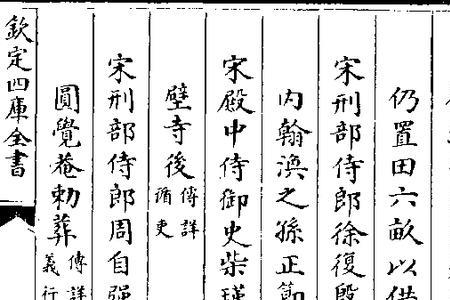 仍置田六畝以供
宋刑部侍郎徐復殷
内翰漁之孫正節
宋殿中侍御史柴瑾
壁寺後傳詳循吏
宋刑部侍郎周自强
圓覺菴勅葬傳詳義行
欽定四庫全書